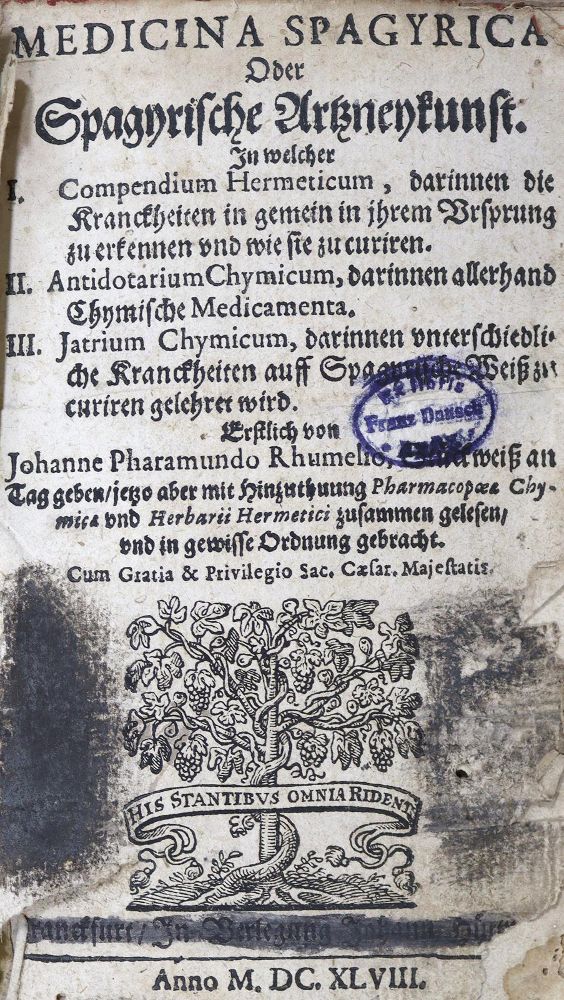 MEDICINA SPAGYRICA
Oder
Spagyrische Artzneykunst.
In welcher
I. Compendium Hermeticum, darinnen die
Kranckheiten in gemein in jhrem Vrsprung
zu erkennen vnd wie sie zu curiren.
II. Antidotarium Chymicum, darinnen allerhand
Chymische Medicamenta.
III. Jatrium Chymicum, darinnen vnterschiedli-
che Kranckheiten auff Spagyrische Weiß zu
curiren gelehret wird.
Erstlich von
Johanne Pharamundo Rhumelio, weiß an
Tag geben/jetzo aber mit Hinzuthuung Pharmacopææ Chy-
micæ vnd Herbarii Hermetici zusammen gelesen/
vnd in gewisse Ordnung gebracht.
Cum Gratia & Privilegio Sac. Cæsar. Majestatis.
Ex libris
Franz
HIS STANTIBVS OMNIA RIDENT
ranckfurt/ In Verlegung Johann
Anno M. DC. XLVIII.